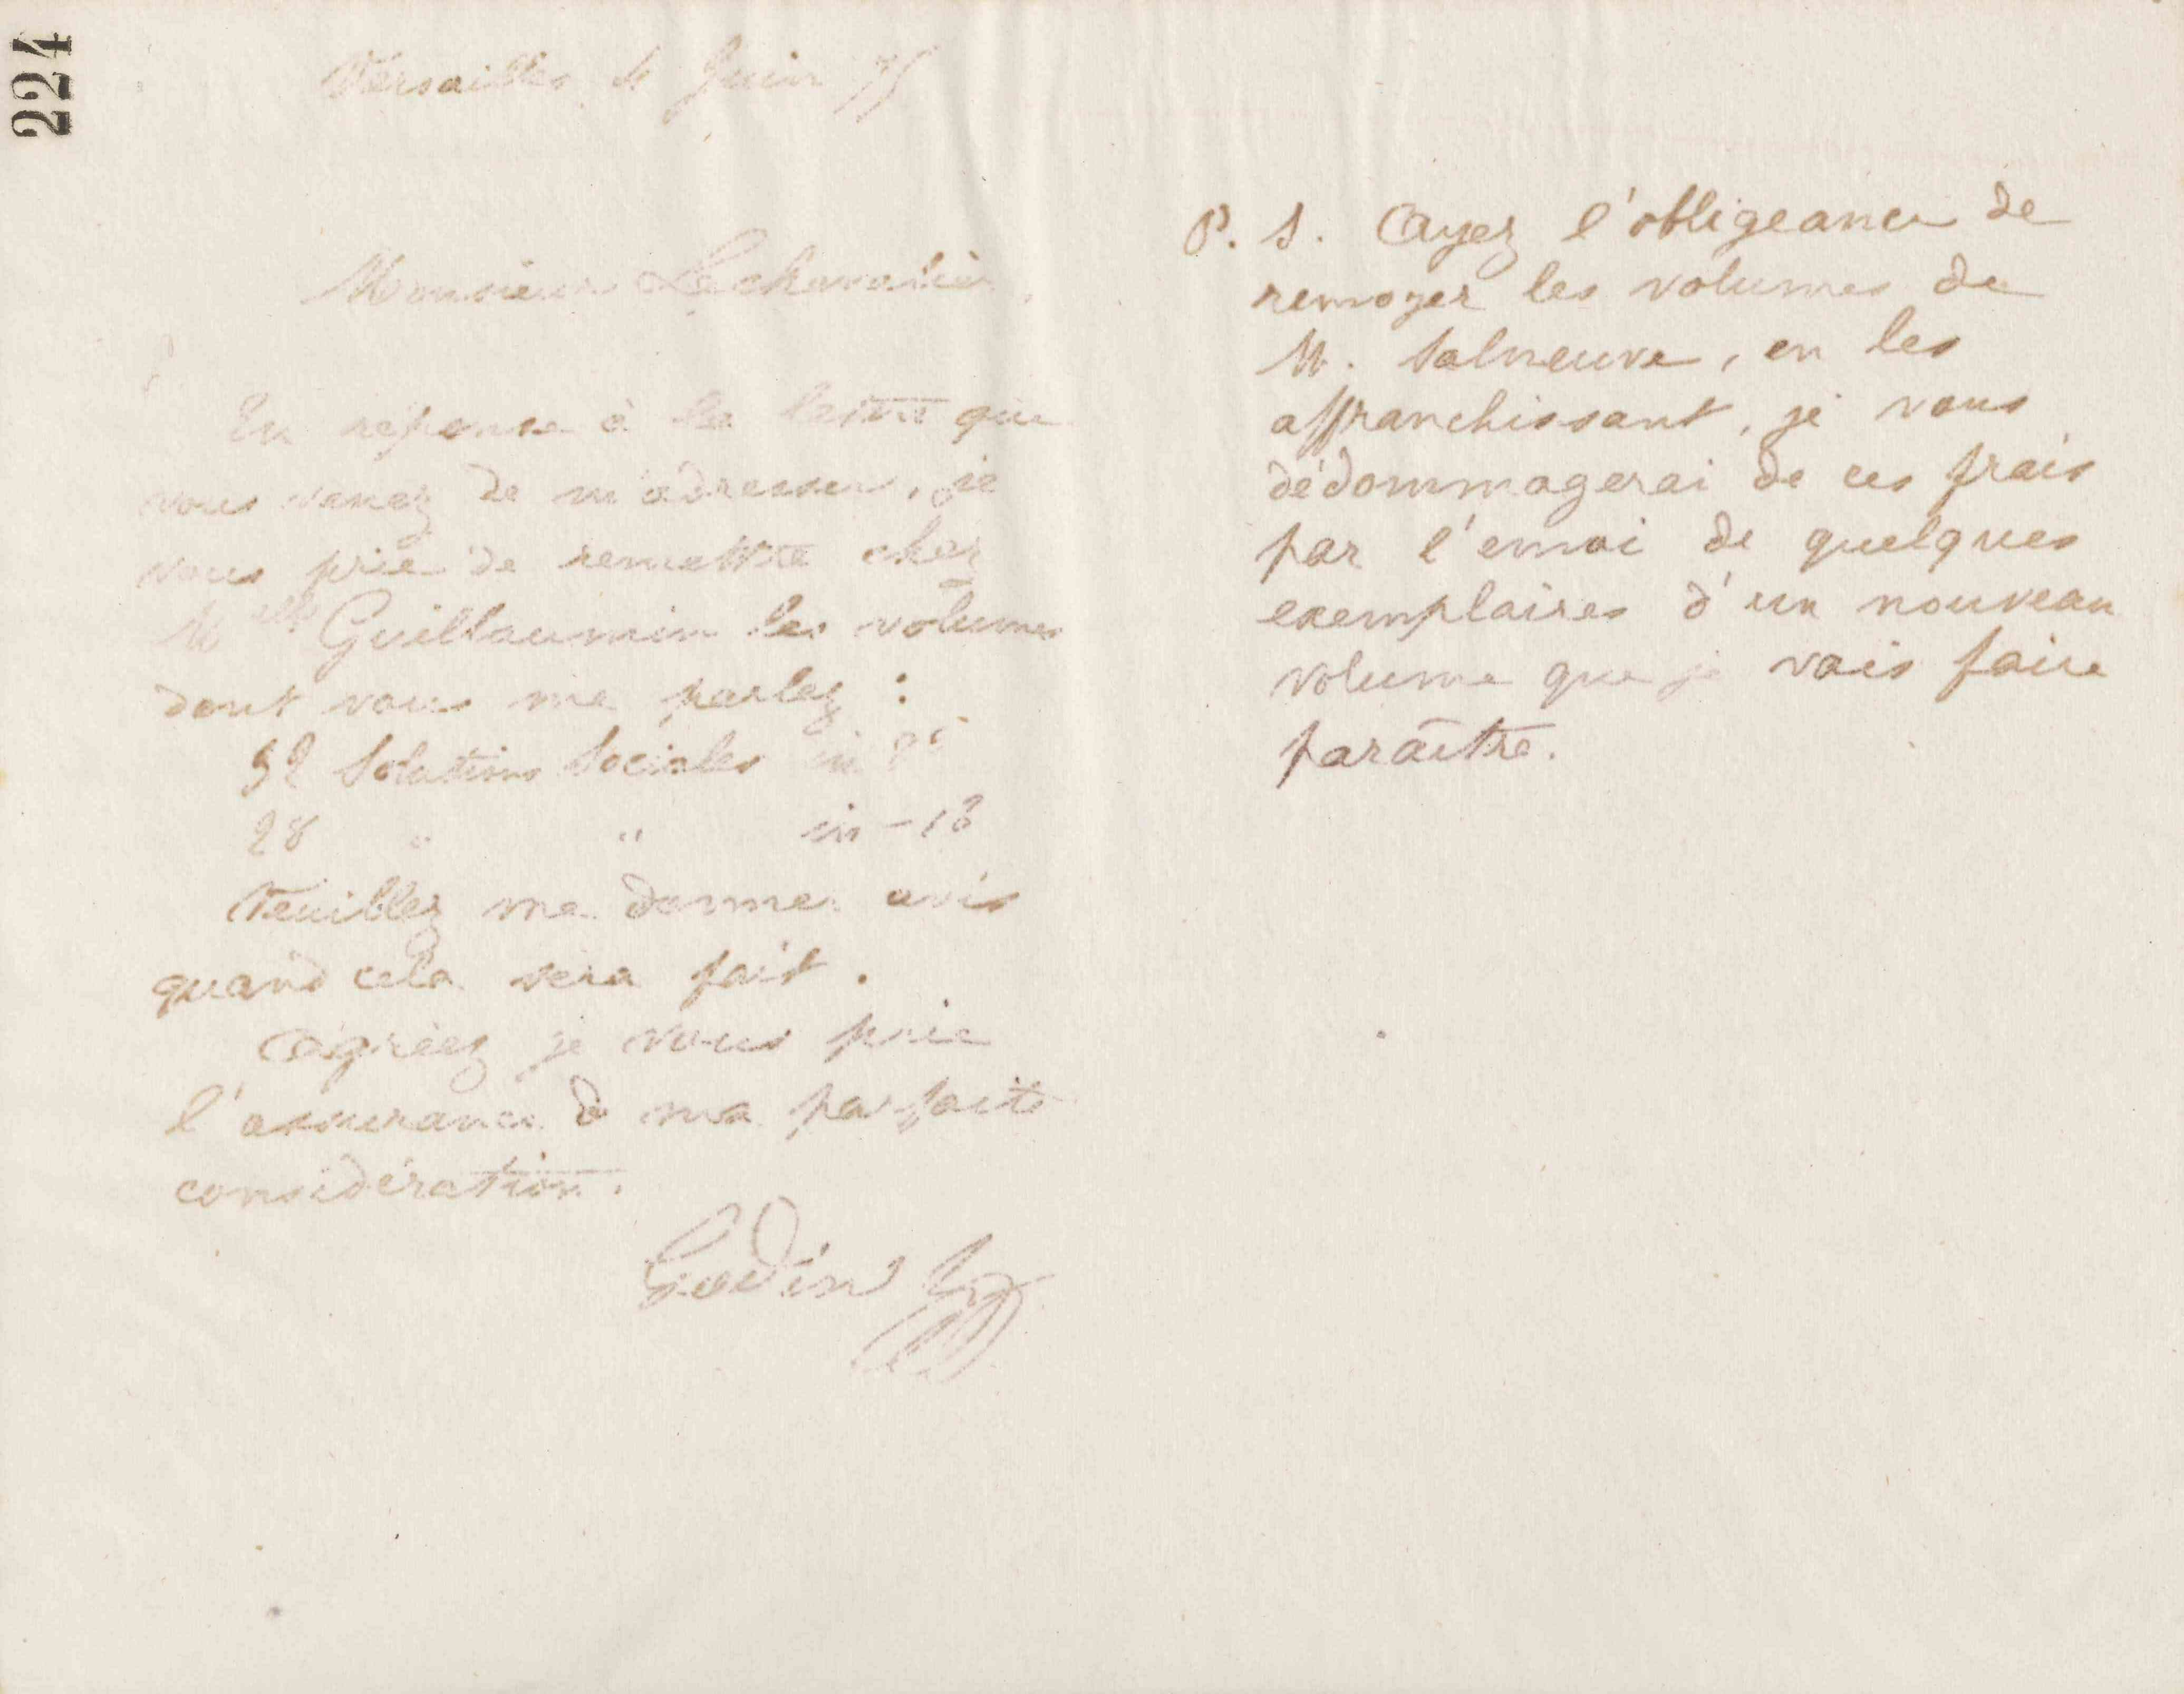 224
Versailles 4 Juin 75
Monsieur Lechevalier,
En réponse à la lettre que
vous venez de m'adresser, je
vous prie de remettre chez
Melle Guillaumin les volumes
dont vous me parlez :
52 Solutions Sociales in 8º
28 " " in-18
Veuillez me donner avis
quand cela sera fait.
Agréez je vous prie
l'assurance de ma parfaite
considération.
Godin
P. S. Ayez l'obligeance de
renvoyer les volumes de
M. Salneuve, en les
affranchissant, je vous
dédommagerai de ces frais
par l'envoi de quelques
exemplaires d'un nouveau
volume que je vais faire
paraître.